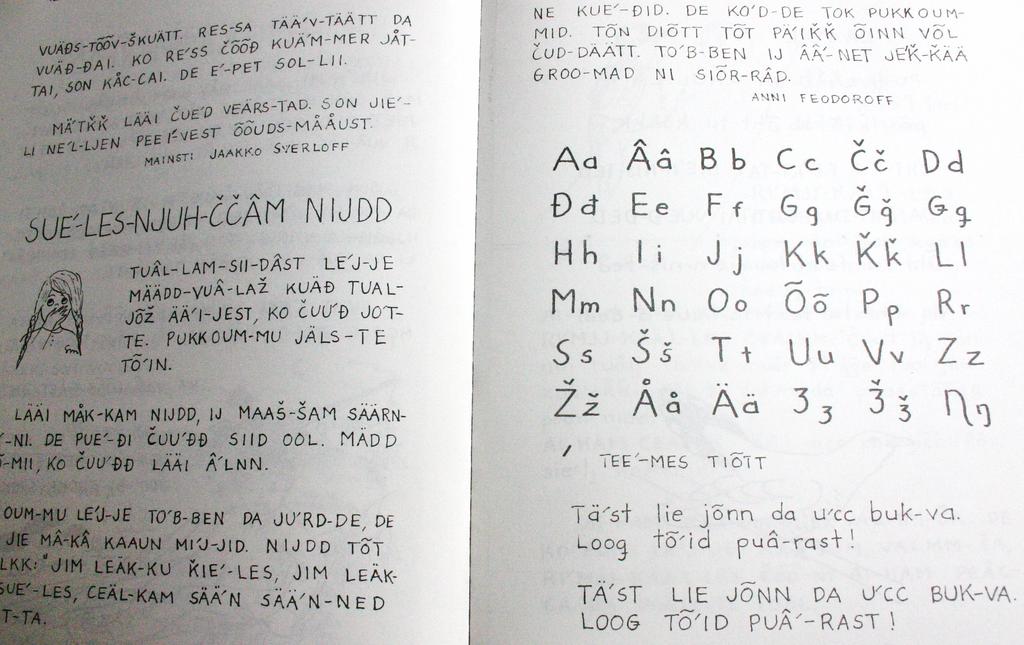 VUÄĐS-TÕÕV-ŠKUÄTT. RES-SA TÄÄʹV-TÄÄTT DA
VUÄĐ-ĐAI. KO REʹSS ČÕÕĐ KUÄʹM-MER JÅT-
TAI, SON KÅC-CAI. DE Eʹ-PET SOL-LII.
MÄʹTǨǨ LÄÄI ČUEʹĐ VEÄRS-TAD. SON JIEʹ-
LI NEʹL-LJEN PEEIʹ-VEST ÕÕUDS-MÅÅUST.
MAINSTI JAAKKO SVERLOFF
SUEʹ-LES-NJUH-ČČÂM NIJDD
TUÂL-LAM-SII-DÂST LEʹJ-JE
MÄÄDD-VUÂ-LAŽ KUÄĐ TUAL-
JÕŽ ÄÄʹI-JEST, KO ČUUʹĐ JOT-
TE. PUKKOUM-MU JÄLS-TE
TÕʹIN.
LÄÄI MÅK-KAM NIJDD, IJ MAAŠ-ŠAM SÄÄRN-
ʹ-NI. DE PUEʹ-ĐI ČUUʹĐĐ SIID OOL. MÄDD
-MII, KO ČUUʹĐĐ LÄÄI Âʹ LNN.
OUM-MU LEʹJ-JE TOʹB-BEN DA JUʹRD-DE, DE
JIE MÂ-KÂ KAAUN MIʹJ-JID. NIJDD TÕT
LKK: "JIM LEÄK-KU ǨIEʹ-LES, JIM LEÄK-
SUEʹ-LES, CEÄL-KAM SÄÄʹN SÄÄʹN-NED
T-TA.
NE KUEʹ-ĐID. DE KOʹD-DE TOK PUKKOUM-
MID. TÕN DIÕTT TÕT PÄʹIǨǨ ÕINN VÕL
ČUD-DÄÄTT. TOʹB-BEN IJ ÂÂʹ-NET JEʹǨ-ǨÄÄ
GROO-MAD NI SIÕR-RÂD.
ANNI FEODOROFF
Aa Ââ Bb Cc Čč Dd
Đđ Ee Ff Gg Ǧǧ Ǥǥ
Hh Ii Jj Kk Ǩǩ Ll
Mm Nn Oo Õõ Pp Rr
Ss Šš Tt Uu Vv Zz
Žž Åå Ää Ʒʒ Ǯǯ Ŋŋ
ʹ TEEʹ-MES TIÕTT
Täʹst lie jõnn da uʹcc buk-va.
Loog tõʹid puâʹ-rast!
TÄʹST LIE JÕNN DA UʹCC BUK-VA.
LOOG TÕʹID PUÂʹ-RAST!